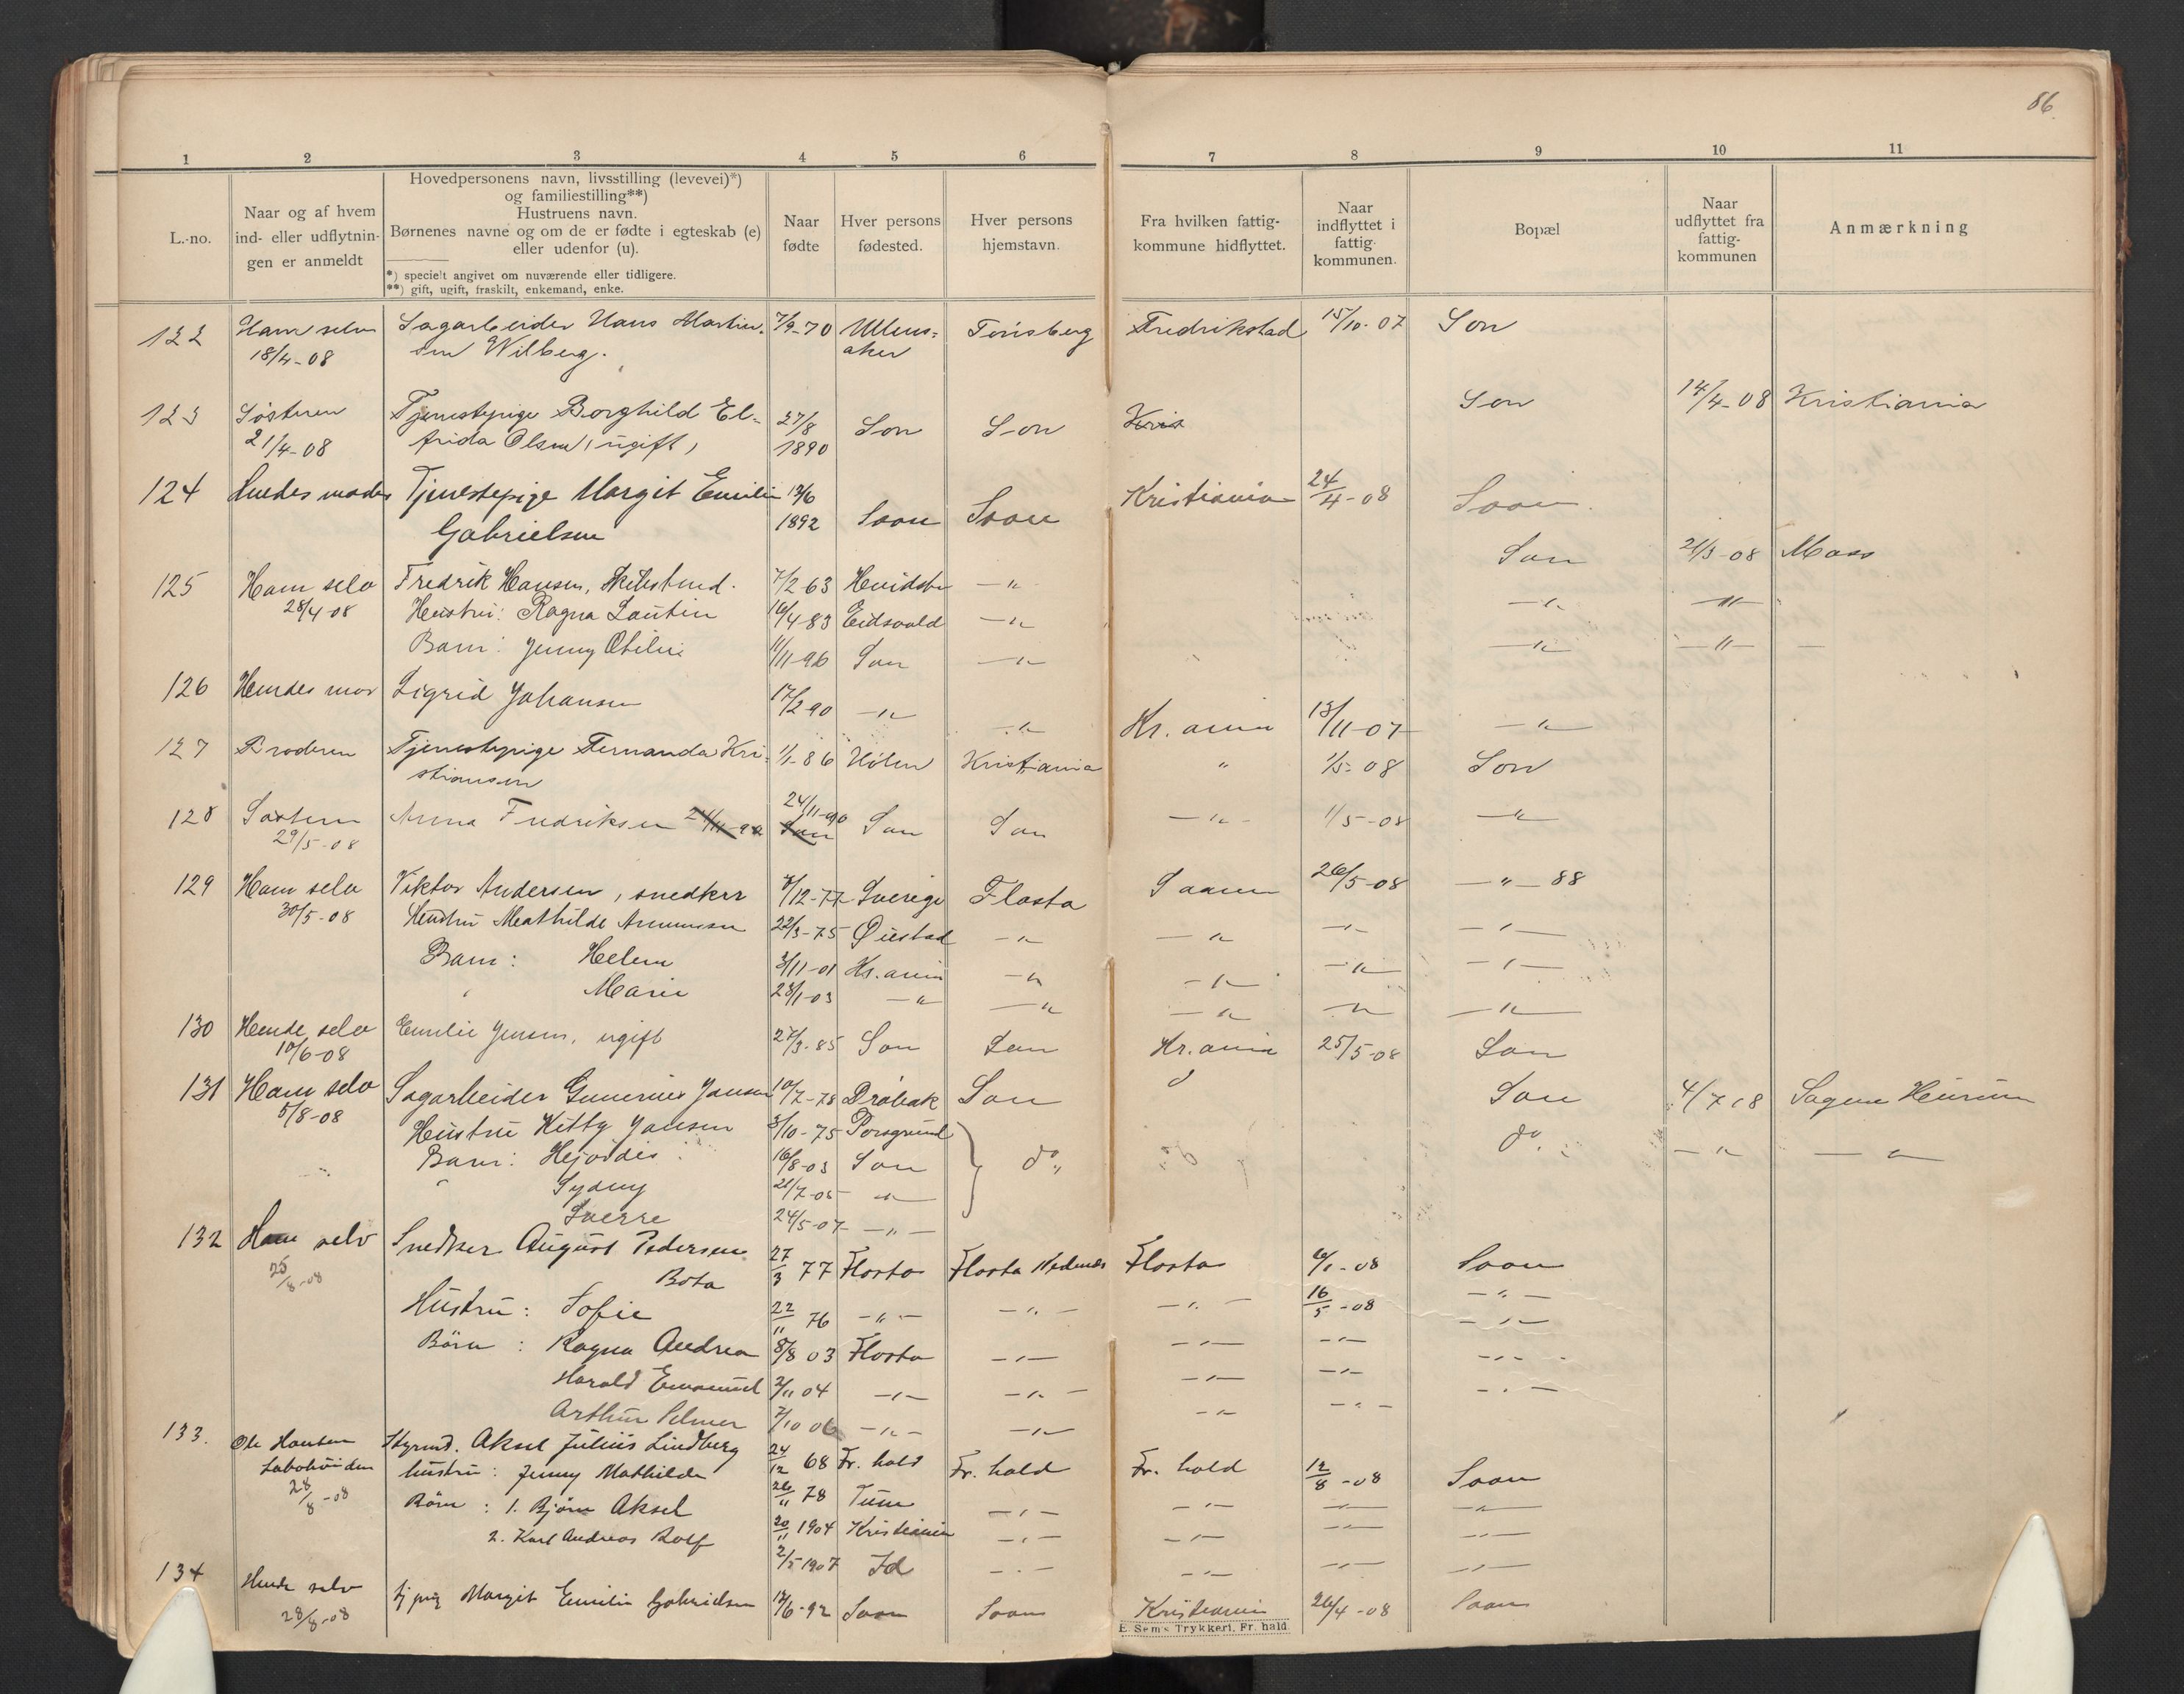 86
1 2 3 4 5 6 7 8 9 10 11
L.-no.
Naar og af hvem
ind- eller udflytnin-
gen er anmeldt
Hovedpersonens navn, livsstilling (levevei)*)
og familiestilling**)
Hustruens navn.
Børnenes navne og om de er fødte i egteskab (e)
eller udenfor (u).
*) specielt angivet om nuværende eller tidligere.
**) gift, ugift, fraskilt, enkemand, enke.
Naar
fødte
Hver persons
fødested.
Hver persons
hjemstavn.
Fra hvilken fattig-
kommune hidflyttet.
Naar
indflyttet i
fattig-
kommunen.
Bopæl
Naar
udflyttet fra
fattig-
kommunen
Anmærkning
122 Ham selv Sagarbeider Hans Martin- 7/9-70 Ullens= Tønsberg Fredrikstad 15/10-07 Son
18/4-08 sen Wilberg. aker
123 Søsteren Tjenestepige Borghild El- 27/8 Son Son Kris Son 14/4-08 Kristiania
21/4-08 frida Olsen, ugift, 1890
124 Hendes moder Tjenestepige Margit Emilie 12/6 Kristiania 24/4-08 Soon
Gabrielsen 1892 Soon Soon
125 Ham selv Fredrik Hansen, 7/2 63 -"- Son 21/3-08 Moss
28/4-08 Hustru: Ragna 16/4-83 Eidsvold -"- -"- -"-
Barn: Jenny Otilie 11/11-96 Son -"- -"- -"- -
126 Hendes mor Sigrid Johansen 17/2 90 -"- -"- Kr.ania 13/11-07 -"-
127 Broderen Tjenestepige Fernanda Kri- 1/1-86 Hølen Kristiania " 1/5-08 Son
stiansen
128 Søsteren Anna Fredriksen 24/11-90 Son Son -"- 1/5-08 -"-
29/5-08
129 Ham selv Viktor Andersen, snedker 7/12-77 Sverige Flosta Saaner 26/5-08 -"- 88
30/5-08 Hustru Mathilde 22/3-75 Øiestad -"- -"- -"- -"-
Barn: Helene 3/11-01 Kr.ania -"- -"- -"- -"-
" Marie 23/1-03 -"- -"- -"- -"- -"-
130 Hende selv Emilie Jensen, ugift 27/3-85 Son Son Kr.ania 25/5-08 Son
10/6-08
131 Ham selv Sagarbeider Gunerius Jansen 10/7-78 Drøbak Son Son 4/7 08
5/8-08 Hustru Kitty Jansen 3/10-75 Porsgrund do. -"- -"-
Barn: Hejørdis 16/8-03 Son do
" Sydny 21/7-05 -"-
Sverre 24/5-07 -"-
132 Ham selv Snedker August Pedersen 27/3 77 Flosta Flosta Nedenes Flosta 6/1-08 Soon
25/8-08 Bota
Hustru: Sofie 22/11 76 -"- -"- -"- 16/5-08 -"-
Børn: Ragna Andrea 8/8 03 Flosta -"- -"- -"- -"-
Harald Emanuel 2/11 04 -"- -"- -"- -"- -"-
Arthur Pelmer 7/10 06 -"- -"- -"- -"- -"-
133. Ole Hansen Styrmd. Aksel Julius Lindberg 24/12 68 Fr. hald Fr. hald Fr. hald 12/8-08 Soon
Labohøiden hustru: Jenny Mathilde 26/11 78 Tune -"- -"- -"- -"-
28/8-08 Børn: 1. Bjørn Aksel 20/11 1904 Kristiania -"- -"- -"- -"-
2. Karl Andreas Rolf 2/5 1907 Id -"- -"- -"- -"-
134 Hende selv tj.pige Margit Emilie Gabrielsen 12/6-92 Soon Soon Kristiania 26/4-08 Soon
28/8-08
E. Sem's Trykkeri, Fr. hald.